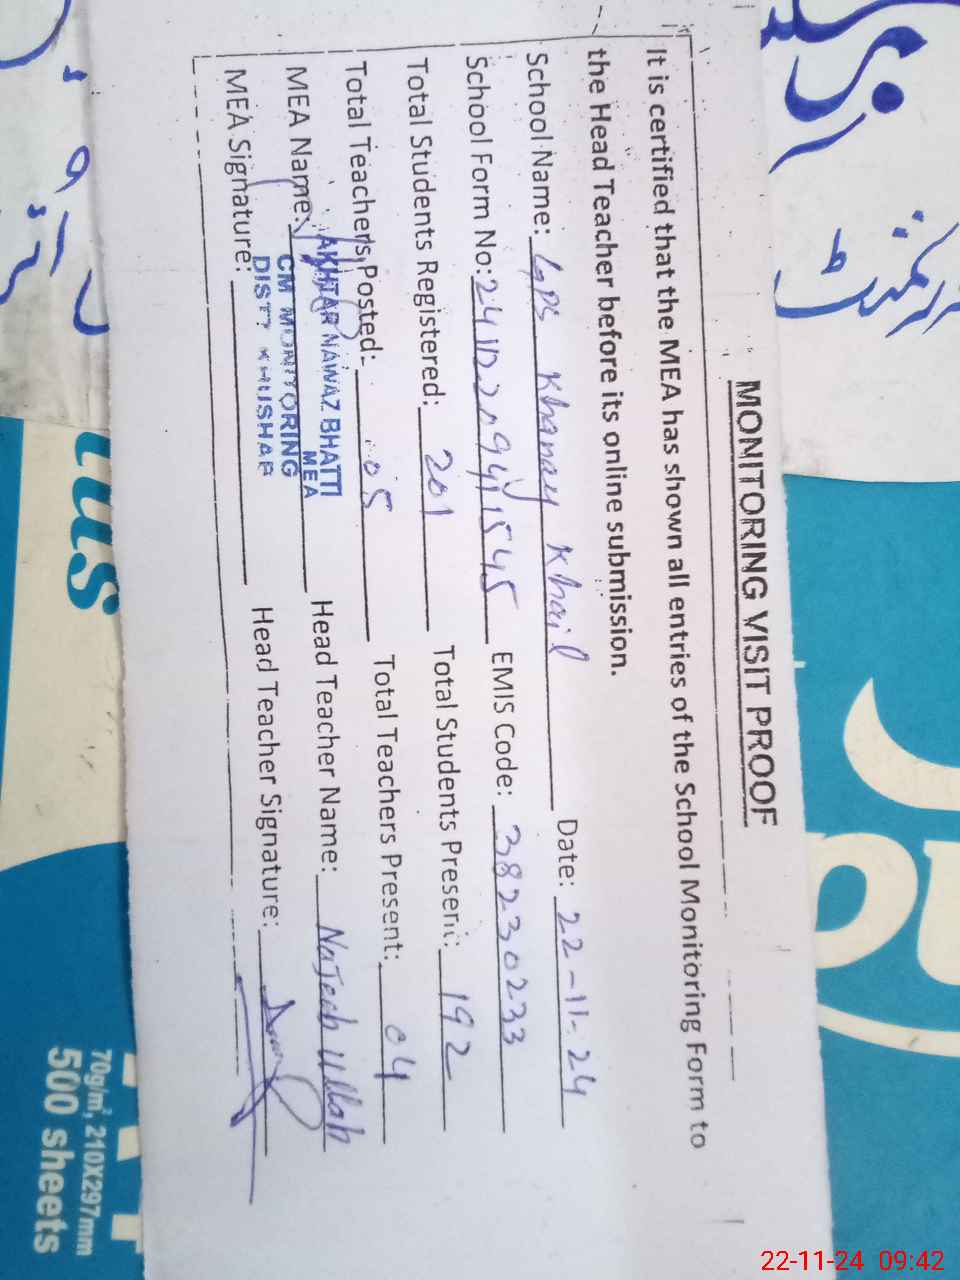 MONITORING VISIT PROOF
It is certified that the MEA has shown all entries of the School Monitoring Form to
the Head Teacher before its online submission.
School Name: GPS Khanay Khail Date: 22-11-24
School Form No: EMIS Code: 38230233
Total Students Registered: 201 Total Students Present: 192
Total Teachers Posted: 05 Total Teachers Present: 04
MEA Name: Head Teacher Name: Najeeb Ullah
AKHTAR NAWAZ BHATTI
MEA
CM MONITORING
DISTT KHUSHAB
MEA Signature: Head Teacher Signature:
70g/m², 210X297mm
500 sheets
22-11-24 09:42